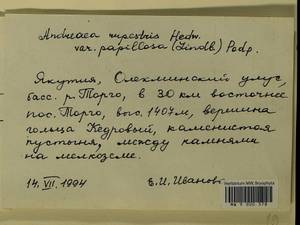 Andreaea rupestris Hedw.
var. papillosa (Lindb.) Podp.
Якутия, Олекминский улус,
басс. р. Торго, в 30 км восточнее
пос. Торго, выс. 1407м, вершина
гольца Кедровый, каменистая
пустыня, между камнями
на мелкоземе.
14. VII. 1994 Е.И. Иванова
Herbarium MW, Bryophyta